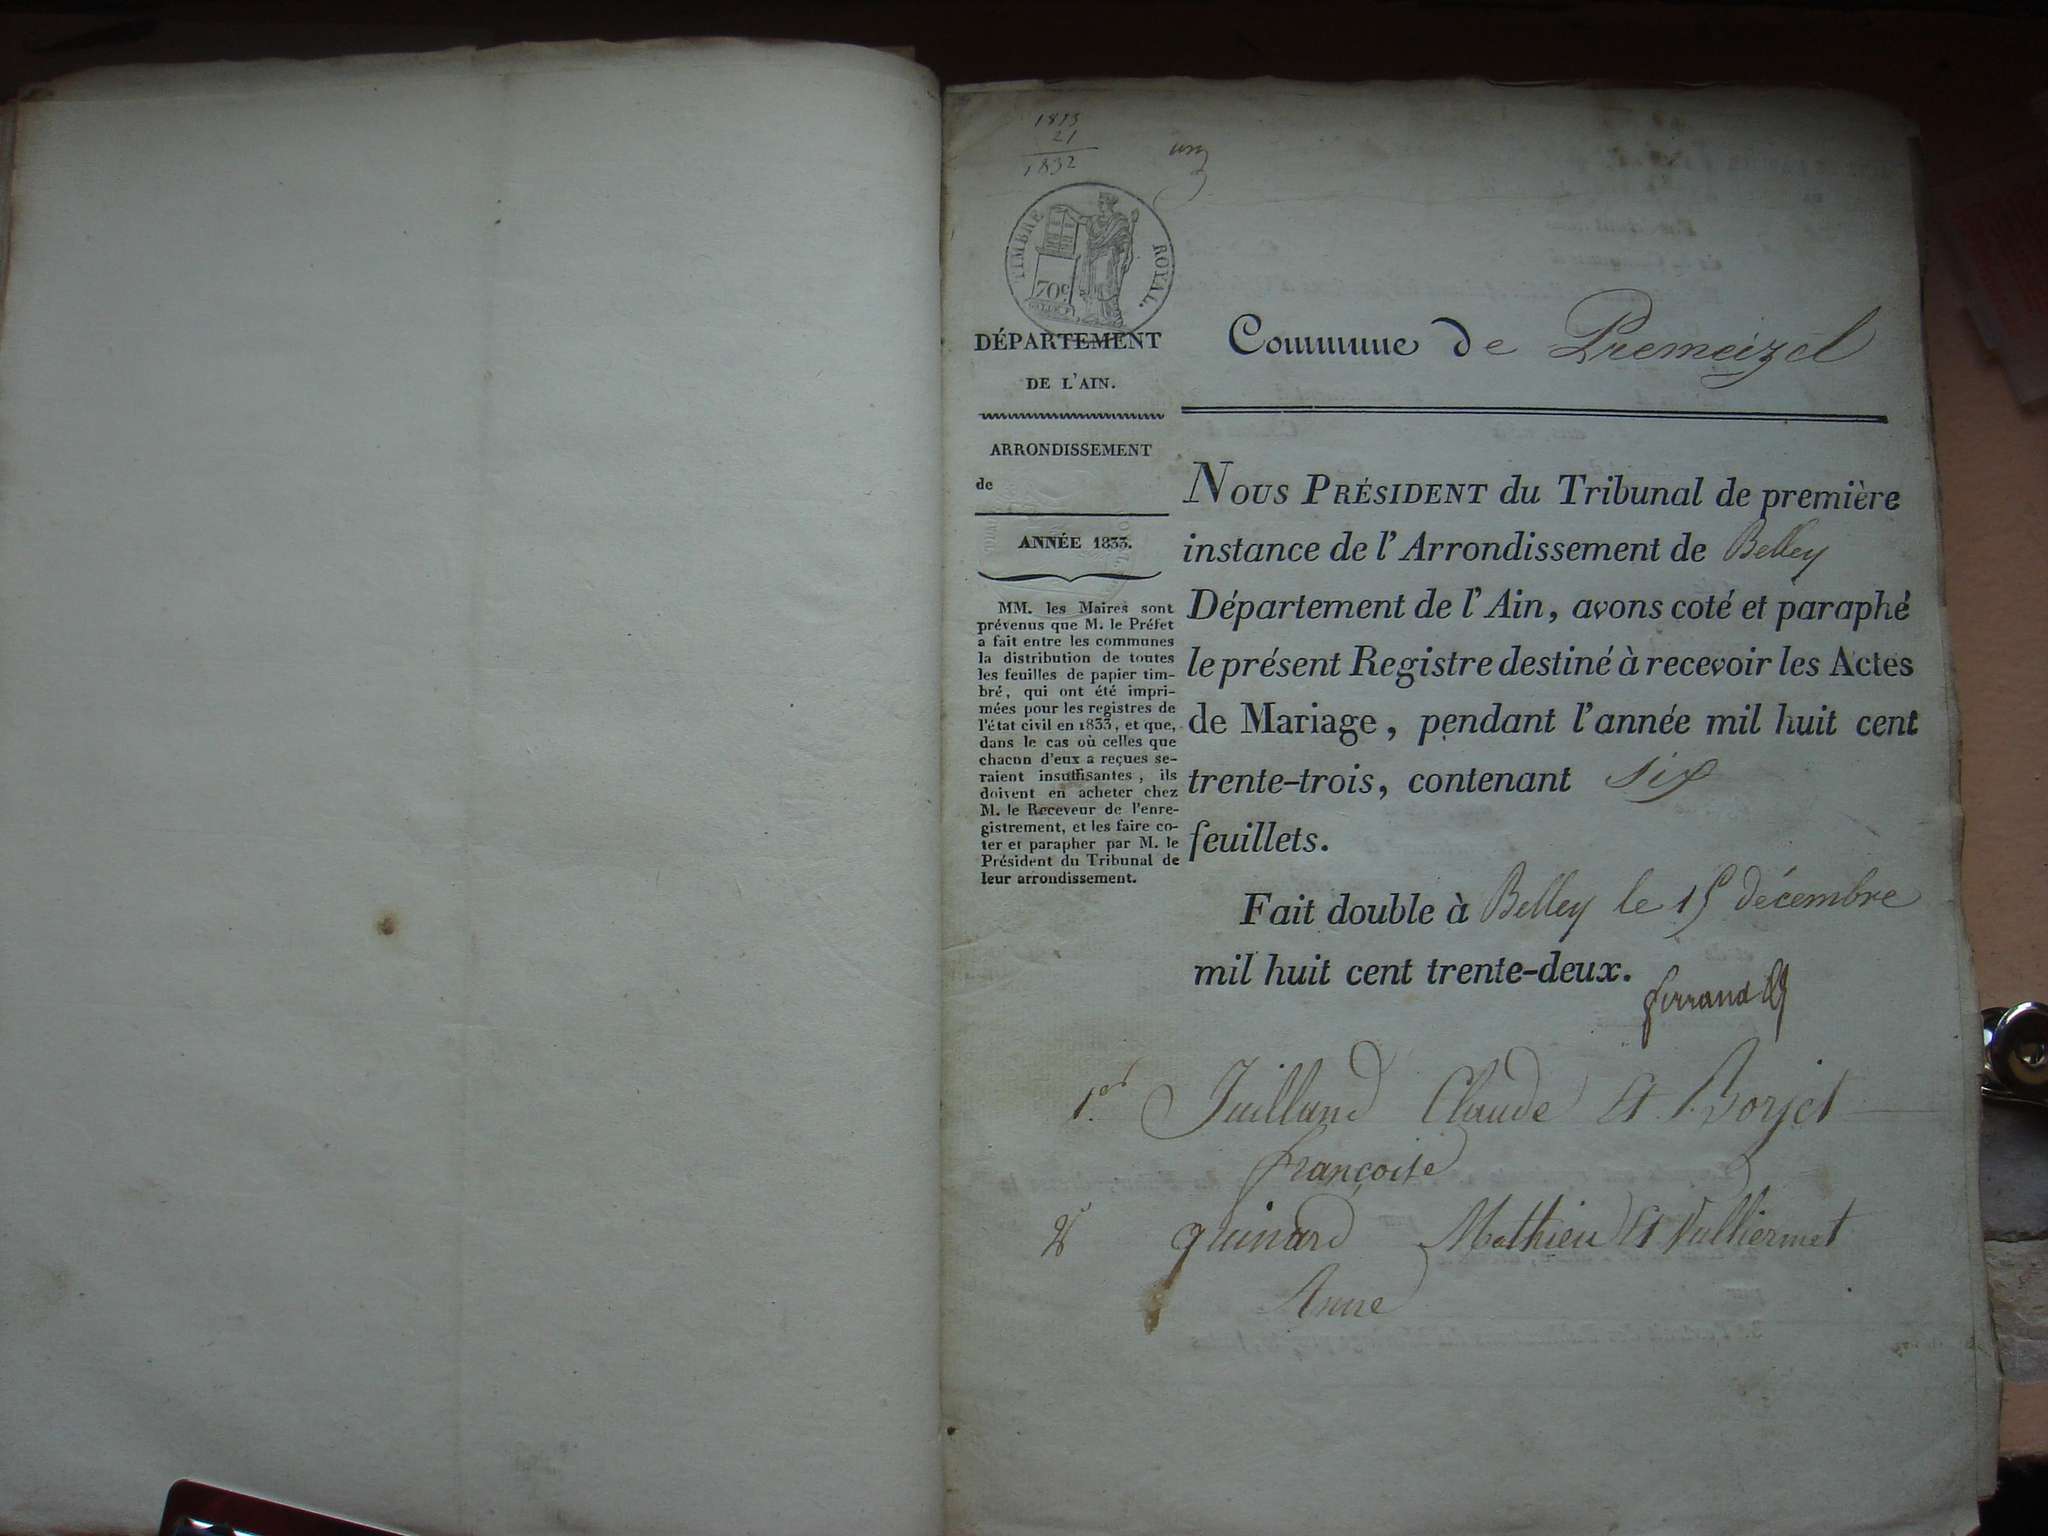 1853
21
1832
un
TIMBRE ROYAL.
70c
DÉPARTEMENT
DE L'AIN.
Commune de Premeizel
ARRONDISSEMENT
de
ANNÉE 1833.
MM. les Maires sont
prévenus que M. le Préfet
a fait entre les communes
la distribution de toutes
les feuilles de papier tim-
bré, qui ont été impri-
mées pour les registres de
l'état civil en 1833, et que,
dans le cas où celles que
chacun d'eux a reçues se-
raient insuffisantes, ils
doivent en acheter chez
M. le Receveur de l'enre-
gistrement, et les faire co-
ter et parapher par M. le
Président du Tribunal de
leur arrondissement.
NOUS PRÉSIDENT du Tribunal de première
instance de l'Arrondissement de Belley
Département de l'Ain, avons coté et paraphé
le présent Registre destiné à recevoir les Actes
de Mariage, pendant l'année mil huit cent
trente-trois, contenant six
feuillets.
Fait double à Belley le 15 décembre
mil huit cent trente-deux.
ferrand
1er Juilland Claude Et Borjet
françoise
2e guinard Mathieu Et Vulliermet
Anne